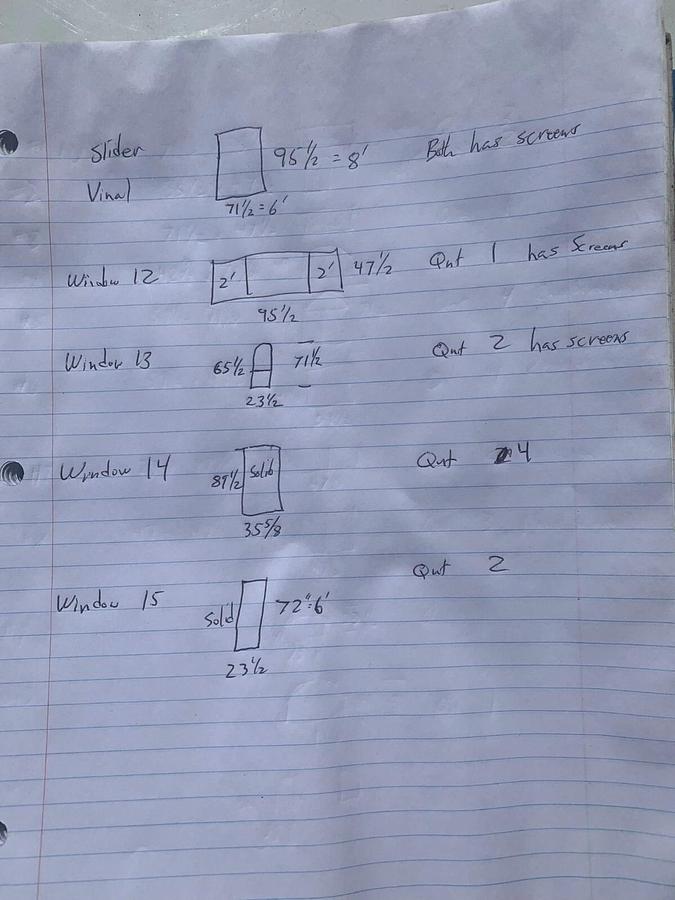 Slider 95 1/2 = 8' Both has screens
Vinal 71 1/2 = 6'
Window 12 2' 2' 47 1/2 Qnt 1 has Screens
95 1/2
Window 13 65 1/2 71 1/2 Qnt 2 has screens
23 1/2
Window 14 Solid Qnt 4
35 5/8
Window 15 Solid 72" = 6' Qnt 2
23 1/2